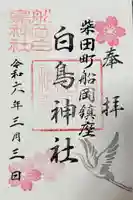 奉拝
柴田町船岡鎮座
白鳥神社
令和六年三月三日